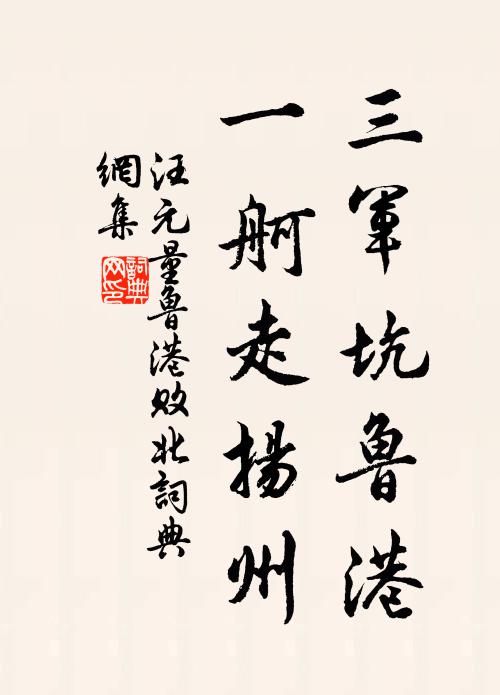 三軍坑魯港
一舸走揚州
汪元量魯港敗北詞典
網集
詞典
网印